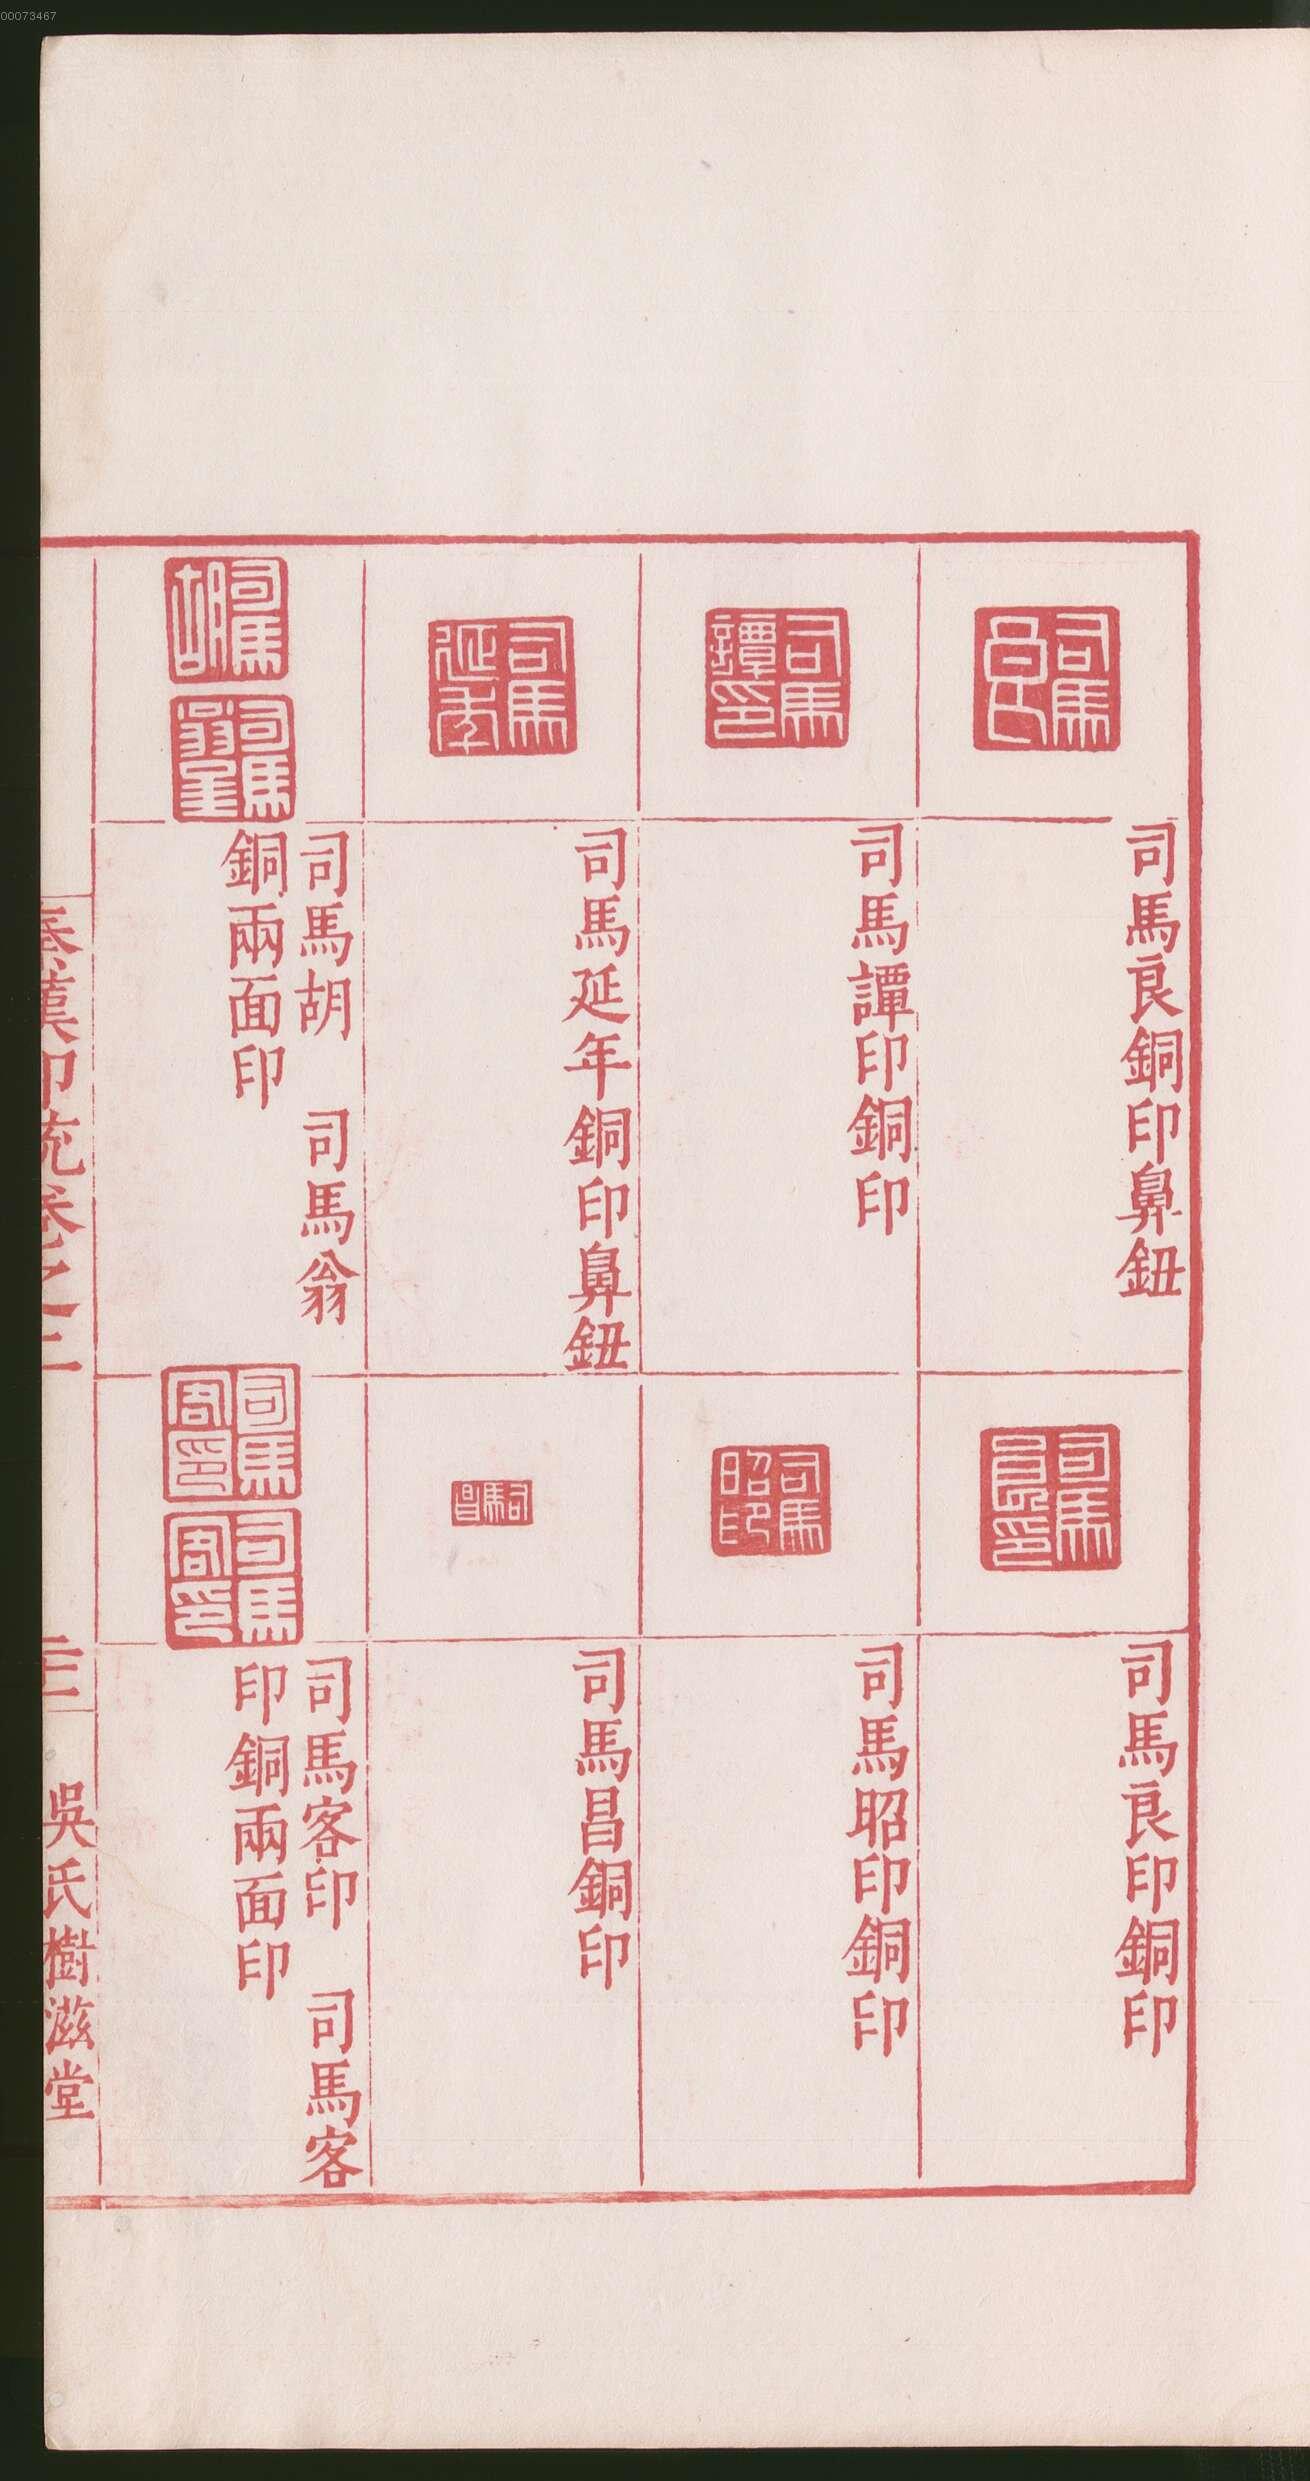 00073467
司馬良
司馬良銅印鼻鈕
司馬良印
司馬良印銅印
司馬譚印
司馬譚印銅印
司馬昭印
司馬昭印銅印
司馬延年
司馬延年銅印鼻鈕
司馬昌
司馬昌銅印
司馬胡
司馬胡　司馬翁
銅兩面印
司馬客印
司馬客印　司馬客
印銅兩面印
秦漢印統卷之二
吳氏樹滋堂